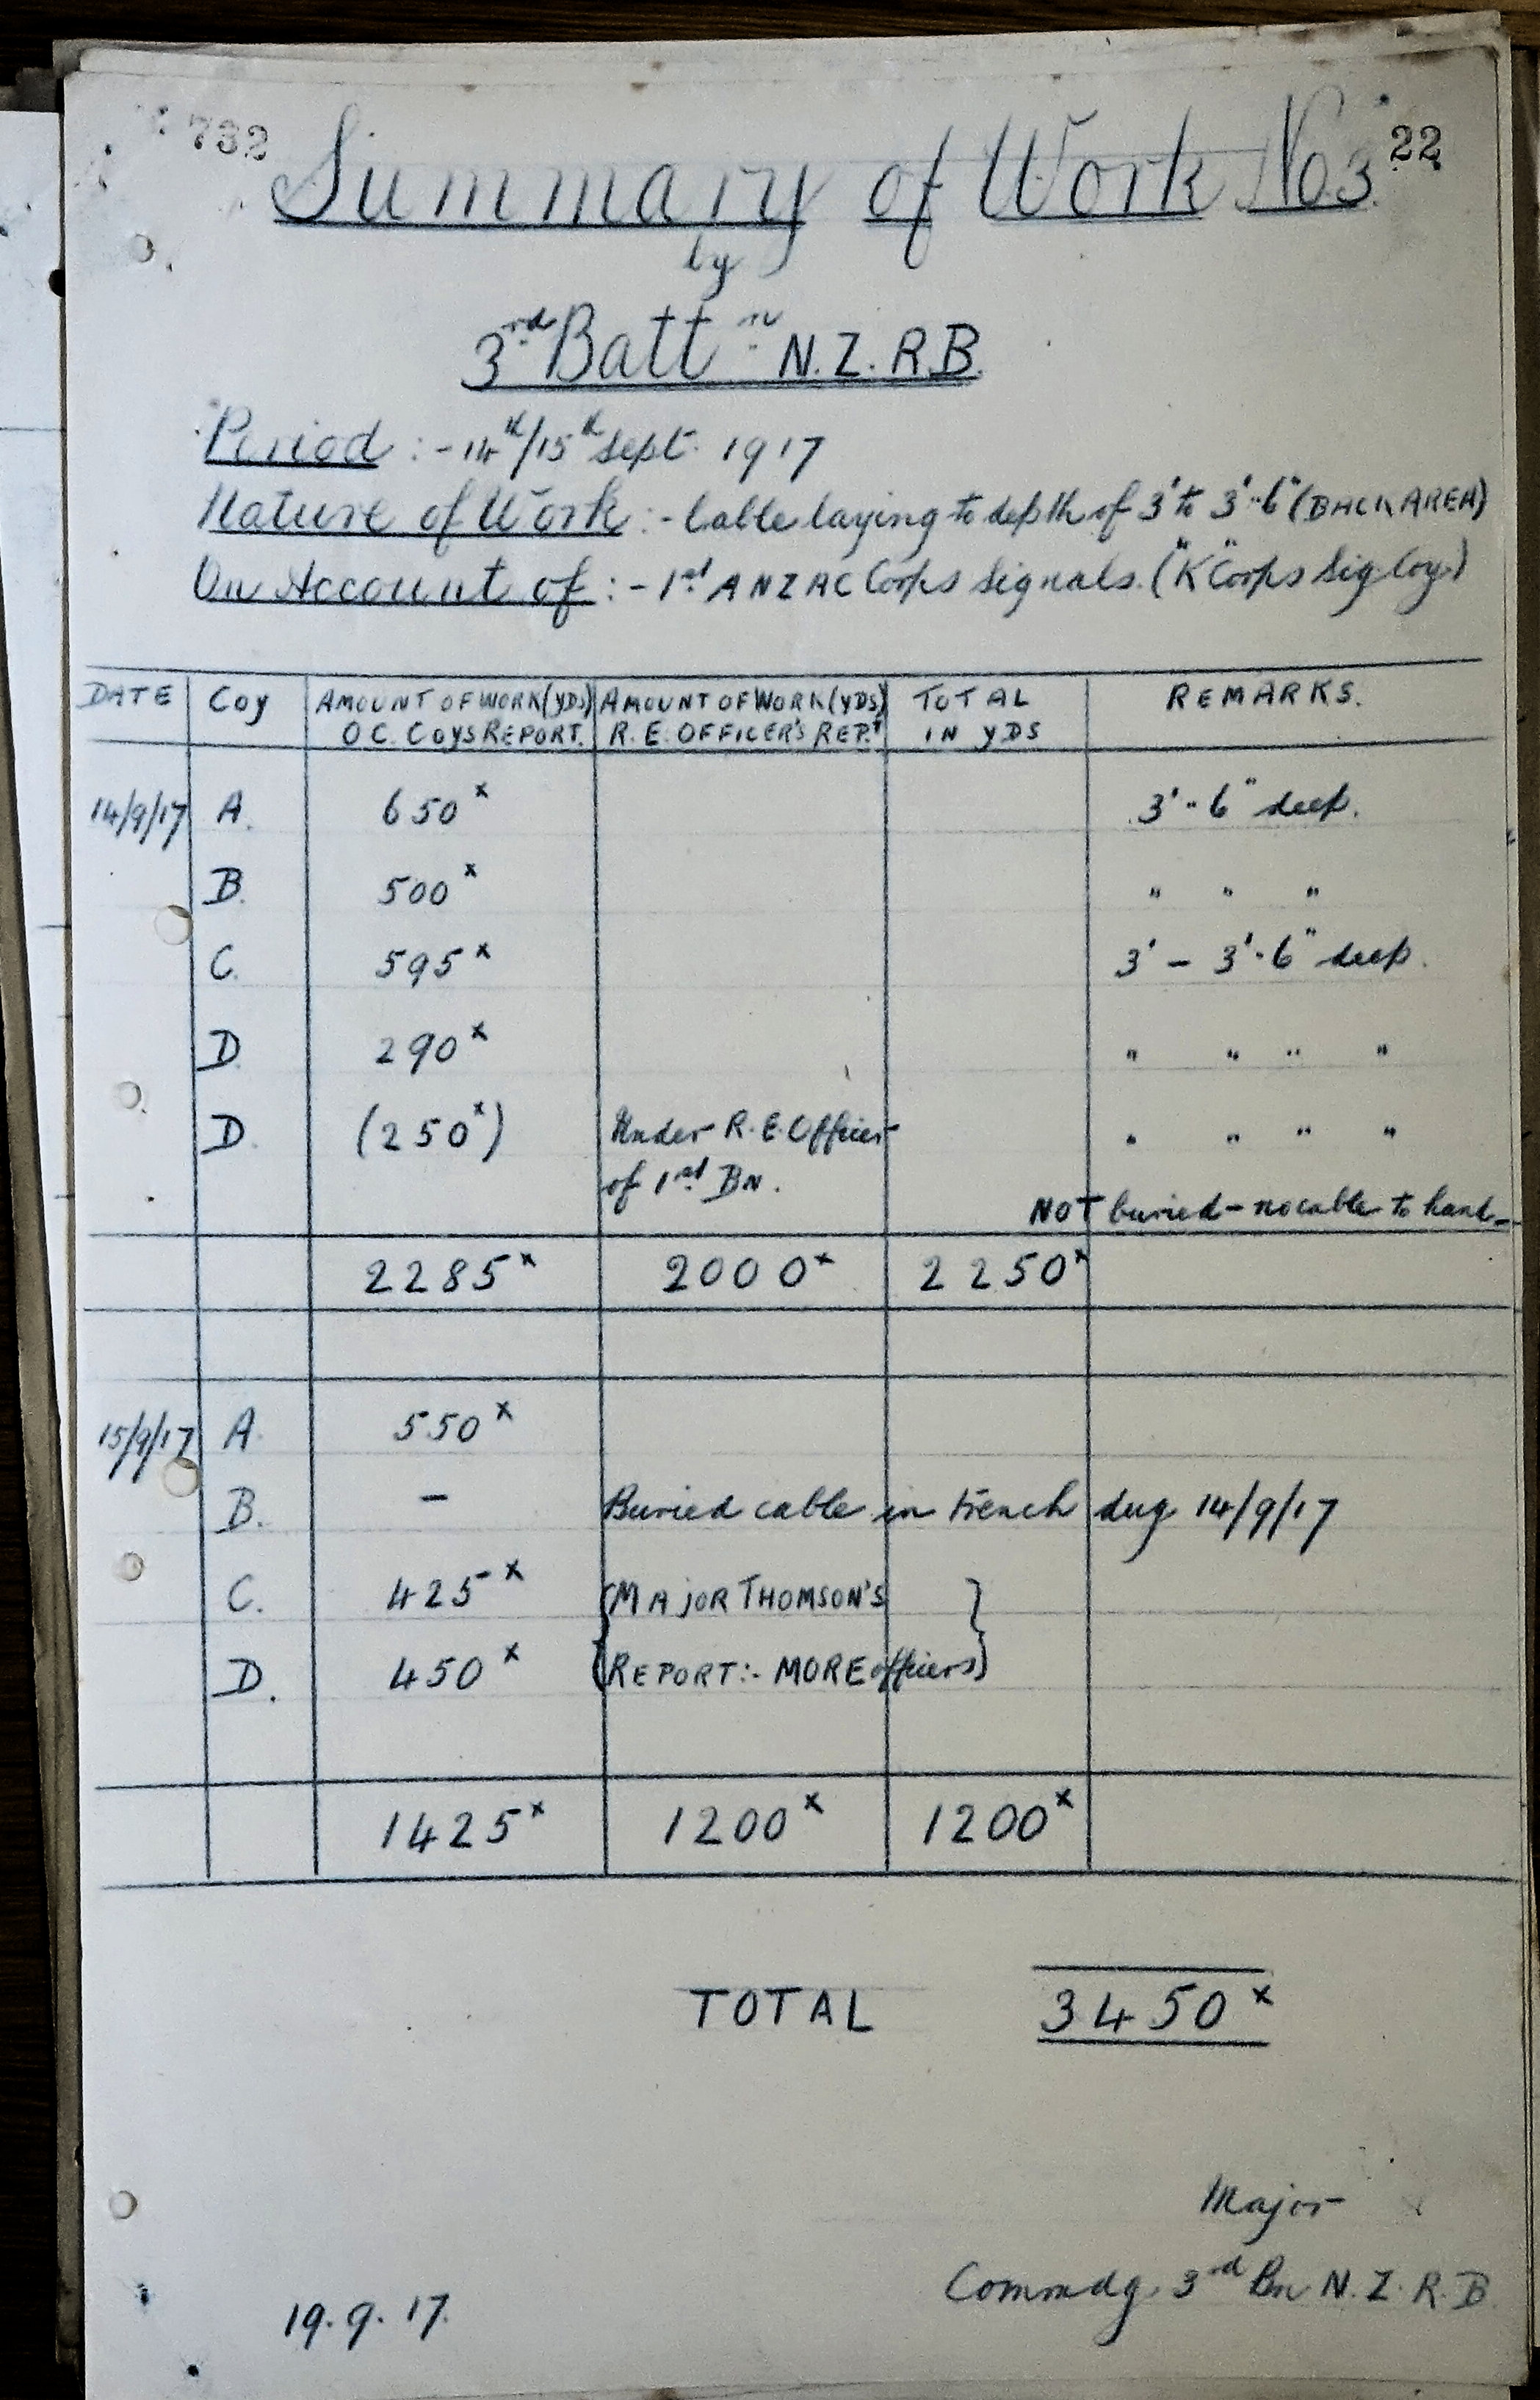 732
22
Summary of Work No 3.
by
3rd Battn N.Z.R.B.
Period :- 14th/15th Sept. 1917
Nature of Work :- Cable laying to depth of 3' to 3'-6" (BACK AREA)
On Account of :- 1st ANZAC Corps Signals. ("K" Corps Sig Coy)
DATE Coy AMOUNT OF WORK (YDS) O.C. COYS REPORT. AMOUNT OF WORK (YDS) R.E. OFFICER'S REPT TOTAL IN YDS REMARKS.
14/9/17 A. 650x 3'-6" deep.
B. 500x " " "
C. 595x 3' - 3'-6" deep.
D 290x " " " "
D. (250x) Under R.E. Officer " " " "
of 1st BN.
NOT buried - no cable to hand -
2285x 2000x 2250x
15/9/17 A. 550x
B. - Buried cable in trench dug 14/9/17
C. 425x {MAJOR THOMSON'S }
D. 450x (REPORT:- MORE officers)
1425x 1200x 1200x
TOTAL 3450x
Major
Commdg. 3rd Bn N.Z.R.B
19.9.17.